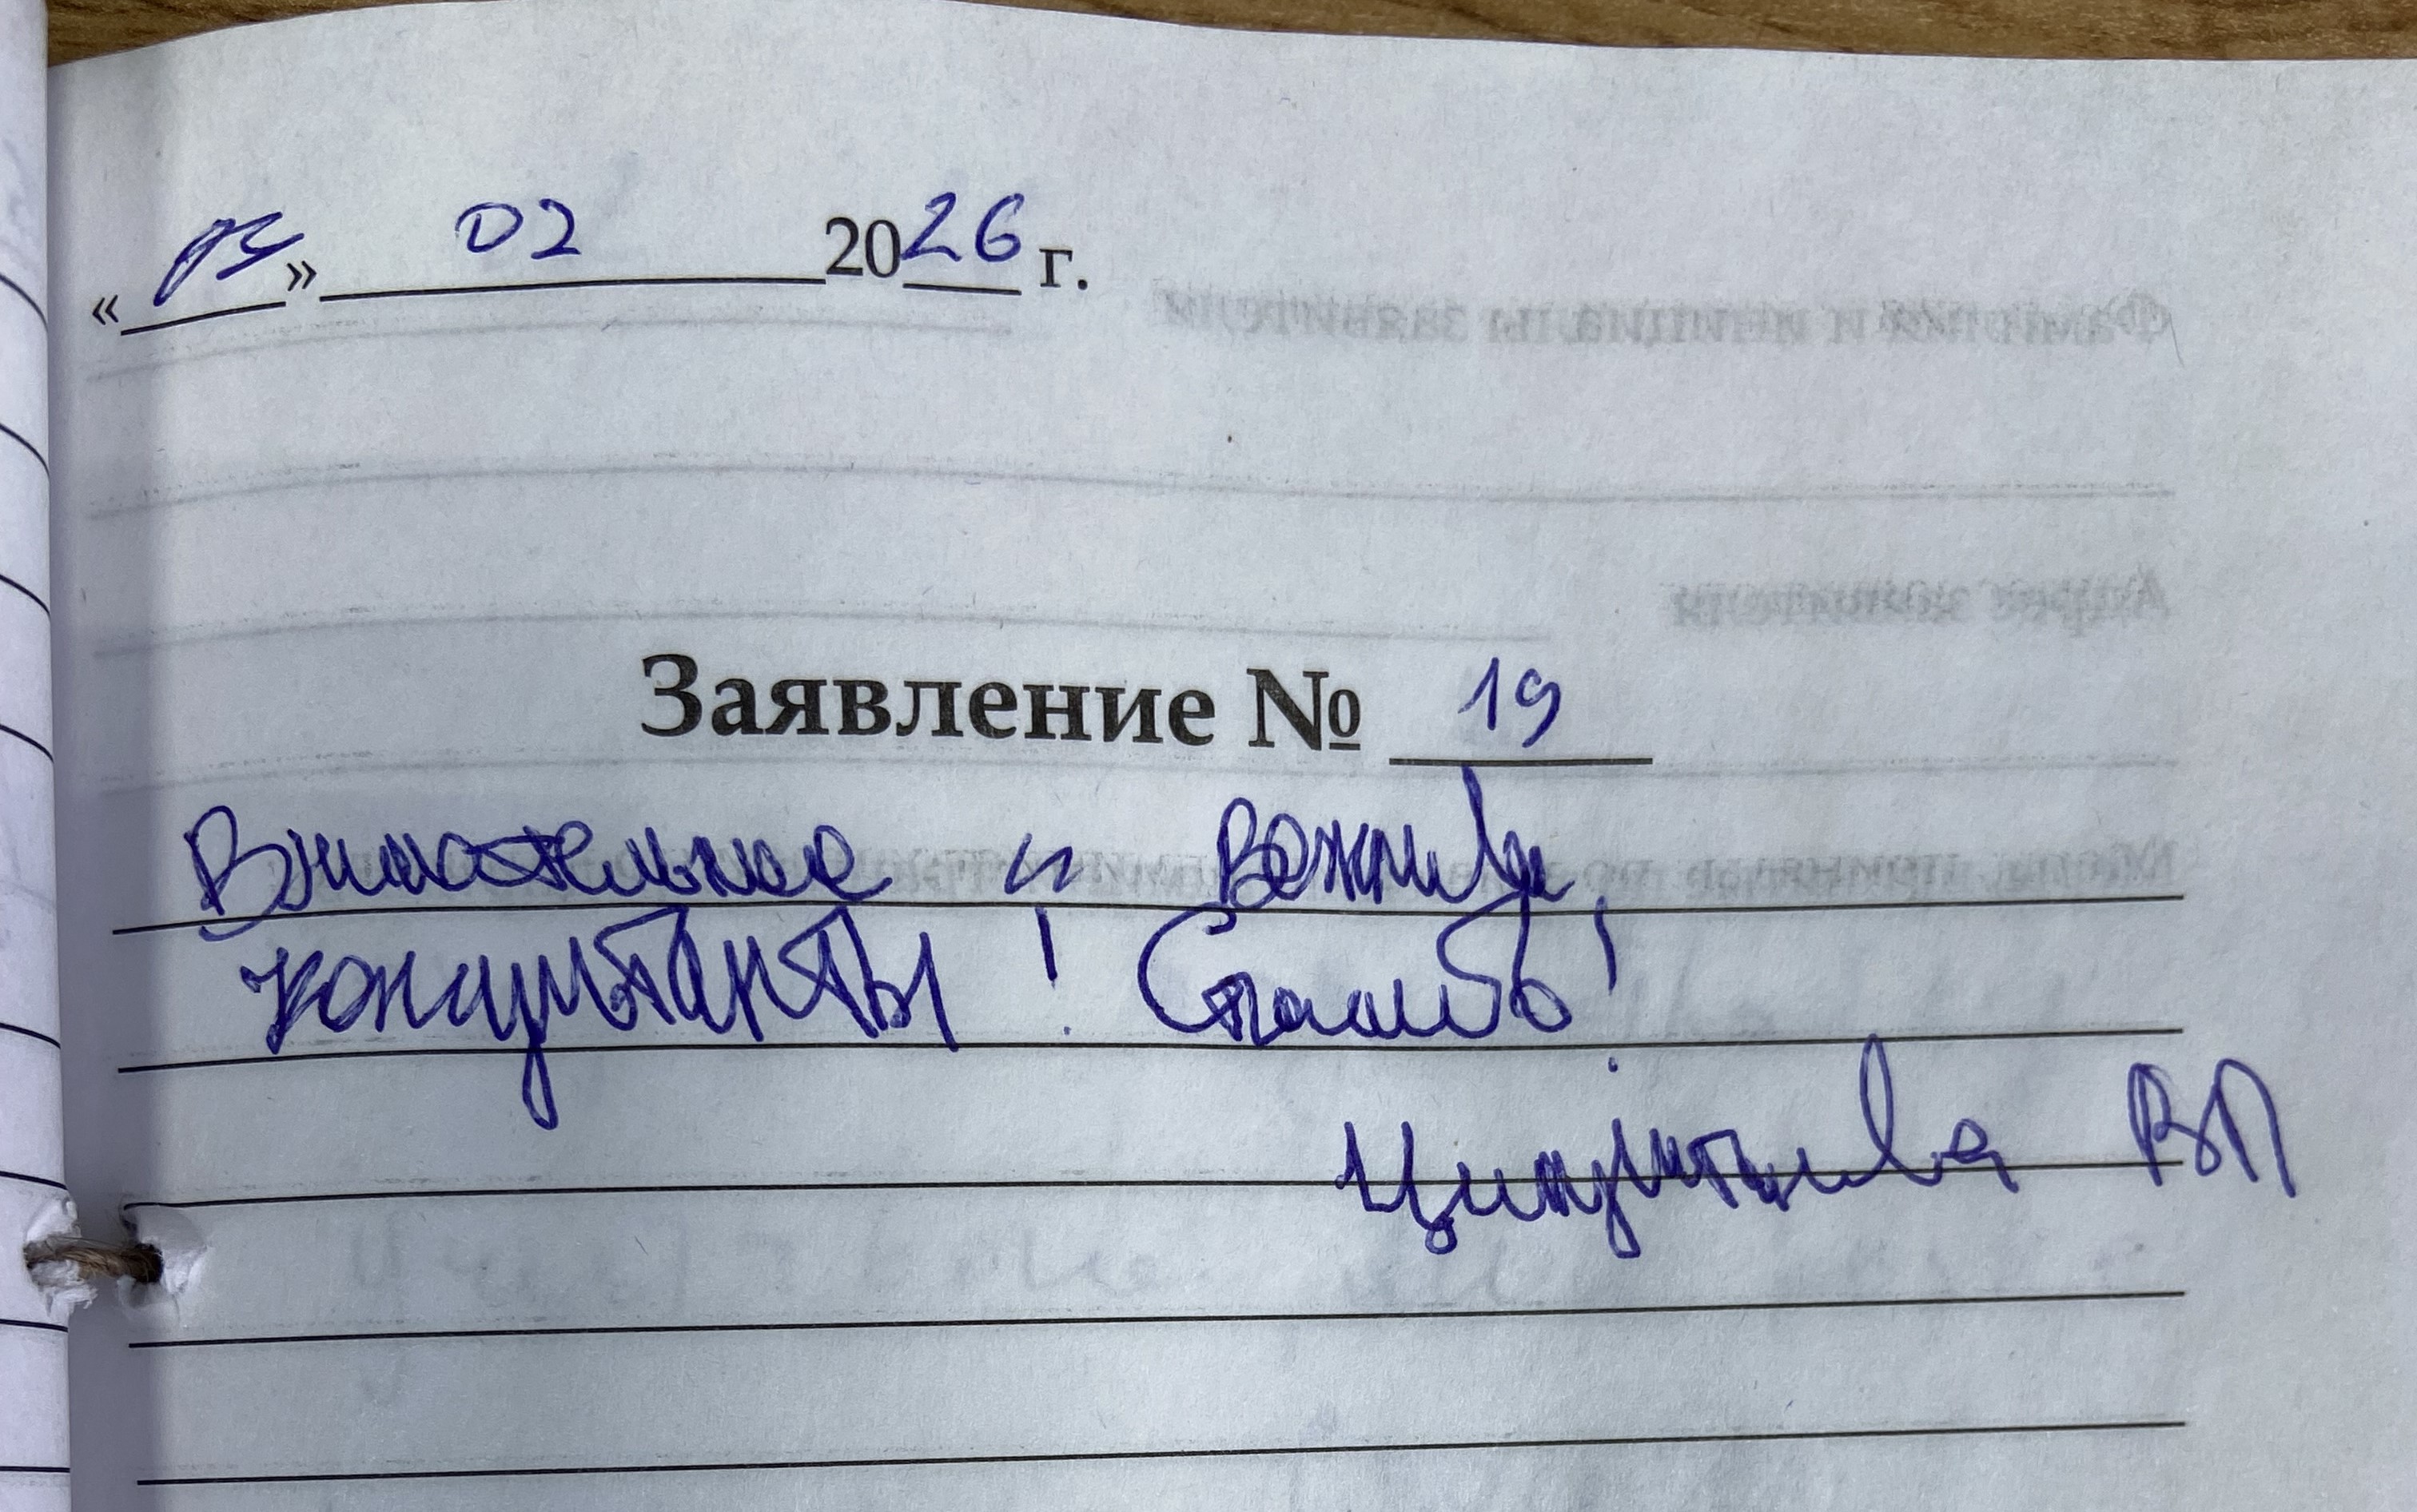 « » 02 2026 г.
Заявление № 19
Внимательные и вежливые
консультанты! Спасибо!
ВП